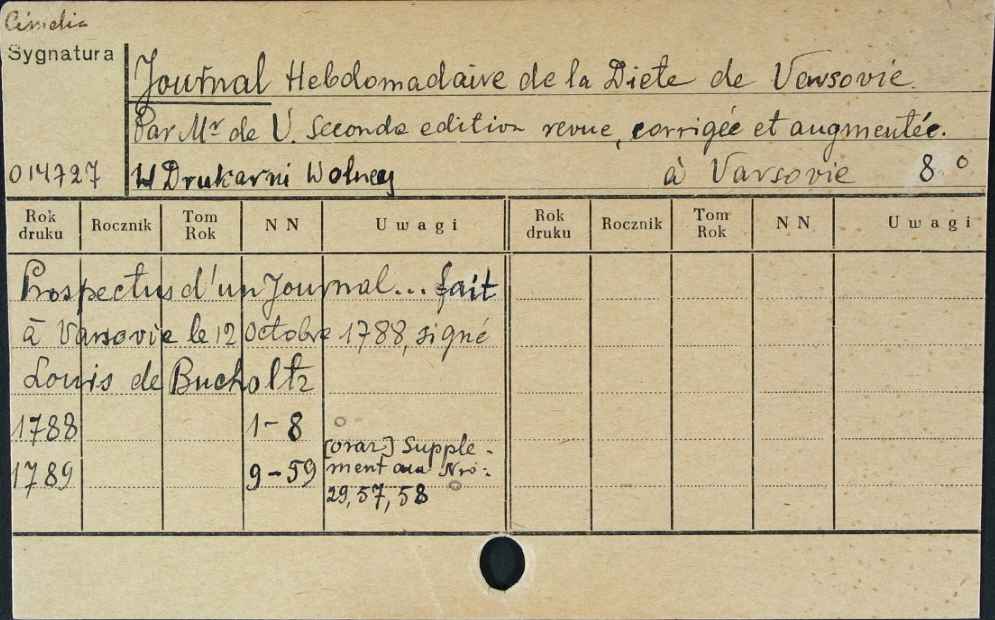 Cimelia
Sygnatura
Journal Hebdomadaire de la Diete de Varsovie.
Par Mr de V. Seconde edition revue, corrigée et augmentée.
014727 W Drukarni Wolney à Varsovie 8°
Rok druku Rocznik Tom Rok NN Uwagi Rok druku Rocznik Tom Rok NN Uwagi
Prospectus d'un Journal... fait
à Varsovie le 12 Octobre 1788, signé
Louis de Bucholtz
1788 1-8
1789 9-59 [oraz] Supple-
ment aux Nro:
29, 57, 58